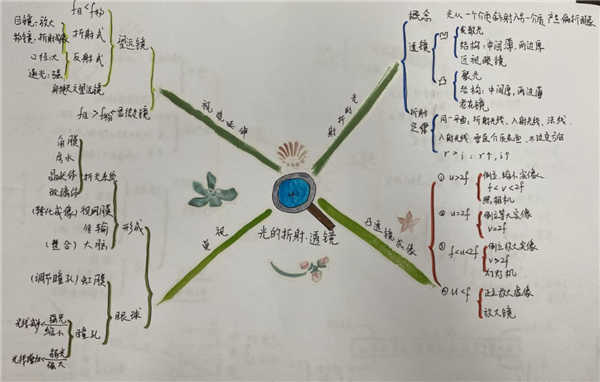 光的折射·透镜
光的折射
概念
光从一个介质斜射入另一介质 产生偏折现象
透镜
凹
发散光
结构:中间薄,两边厚
近视眼镜
凸
聚光
结构:中间厚,两边薄
老花镜
折射
定律
同一平面,折射光线,入射光线,法线
r>i = r↑,i↑
凸透镜成像
① u>2f
倒立缩小实像
f<v<2f
照相机
② u=2f
倒立等大实像
v=2f
③ f<u<2f
倒立放大实像
v>2f
幻灯机
④ u<f
正立放大虚像
放大镜
视觉延伸
望远镜
f目<f物
折射式
反射式
目镜:放大
口径大
通光:强
f目>f物
显微镜
视觉
形成
折光系统
角膜
房水
晶状体
玻璃体
视网膜
传输
(整合) 大脑
眼球
(调节瞳孔) 虹膜
瞳孔
强光
缩小
弱光